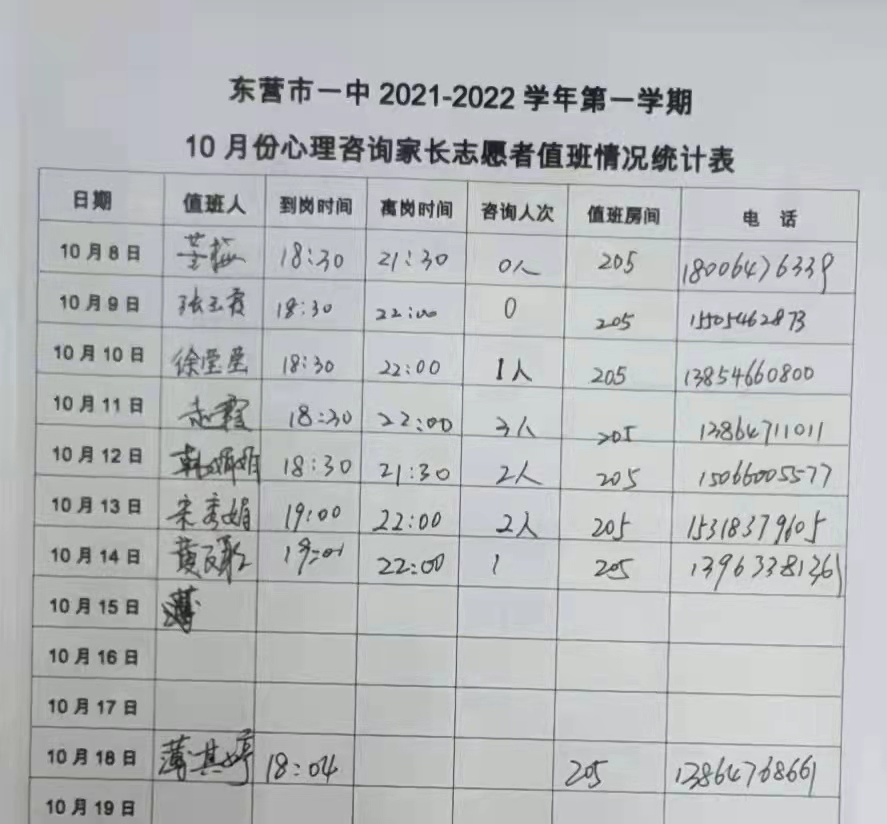 东营市一中 2021-2022 学年第一学期
10 月份心理咨询家长志愿者值班情况统计表
日期 值班人 到岗时间 离岗时间 咨询人次 值班房间 电 话
10 月 8 日 18:30 21:30 0人 205 18006476339
10 月 9 日 张玉霞 18:30 22:00 0 205 1505462873
10 月 10 日 徐莹莹 18:30 22:00 1人 205 13854660800
10 月 11 日 18:30 22:00 3人 205 13864711011
10 月 12 日 韩娟娟 18:30 21:30 2人 205 15066005577
10 月 13 日 宋秀娟 19:00 22:00 2人 205 15318379605
10 月 14 日 22:00 1 205 13963381361
10 月 15 日 薄
10 月 16 日
10 月 17 日
10 月 18 日 薄其婷 18:04 205 13864768661
10 月 19 日